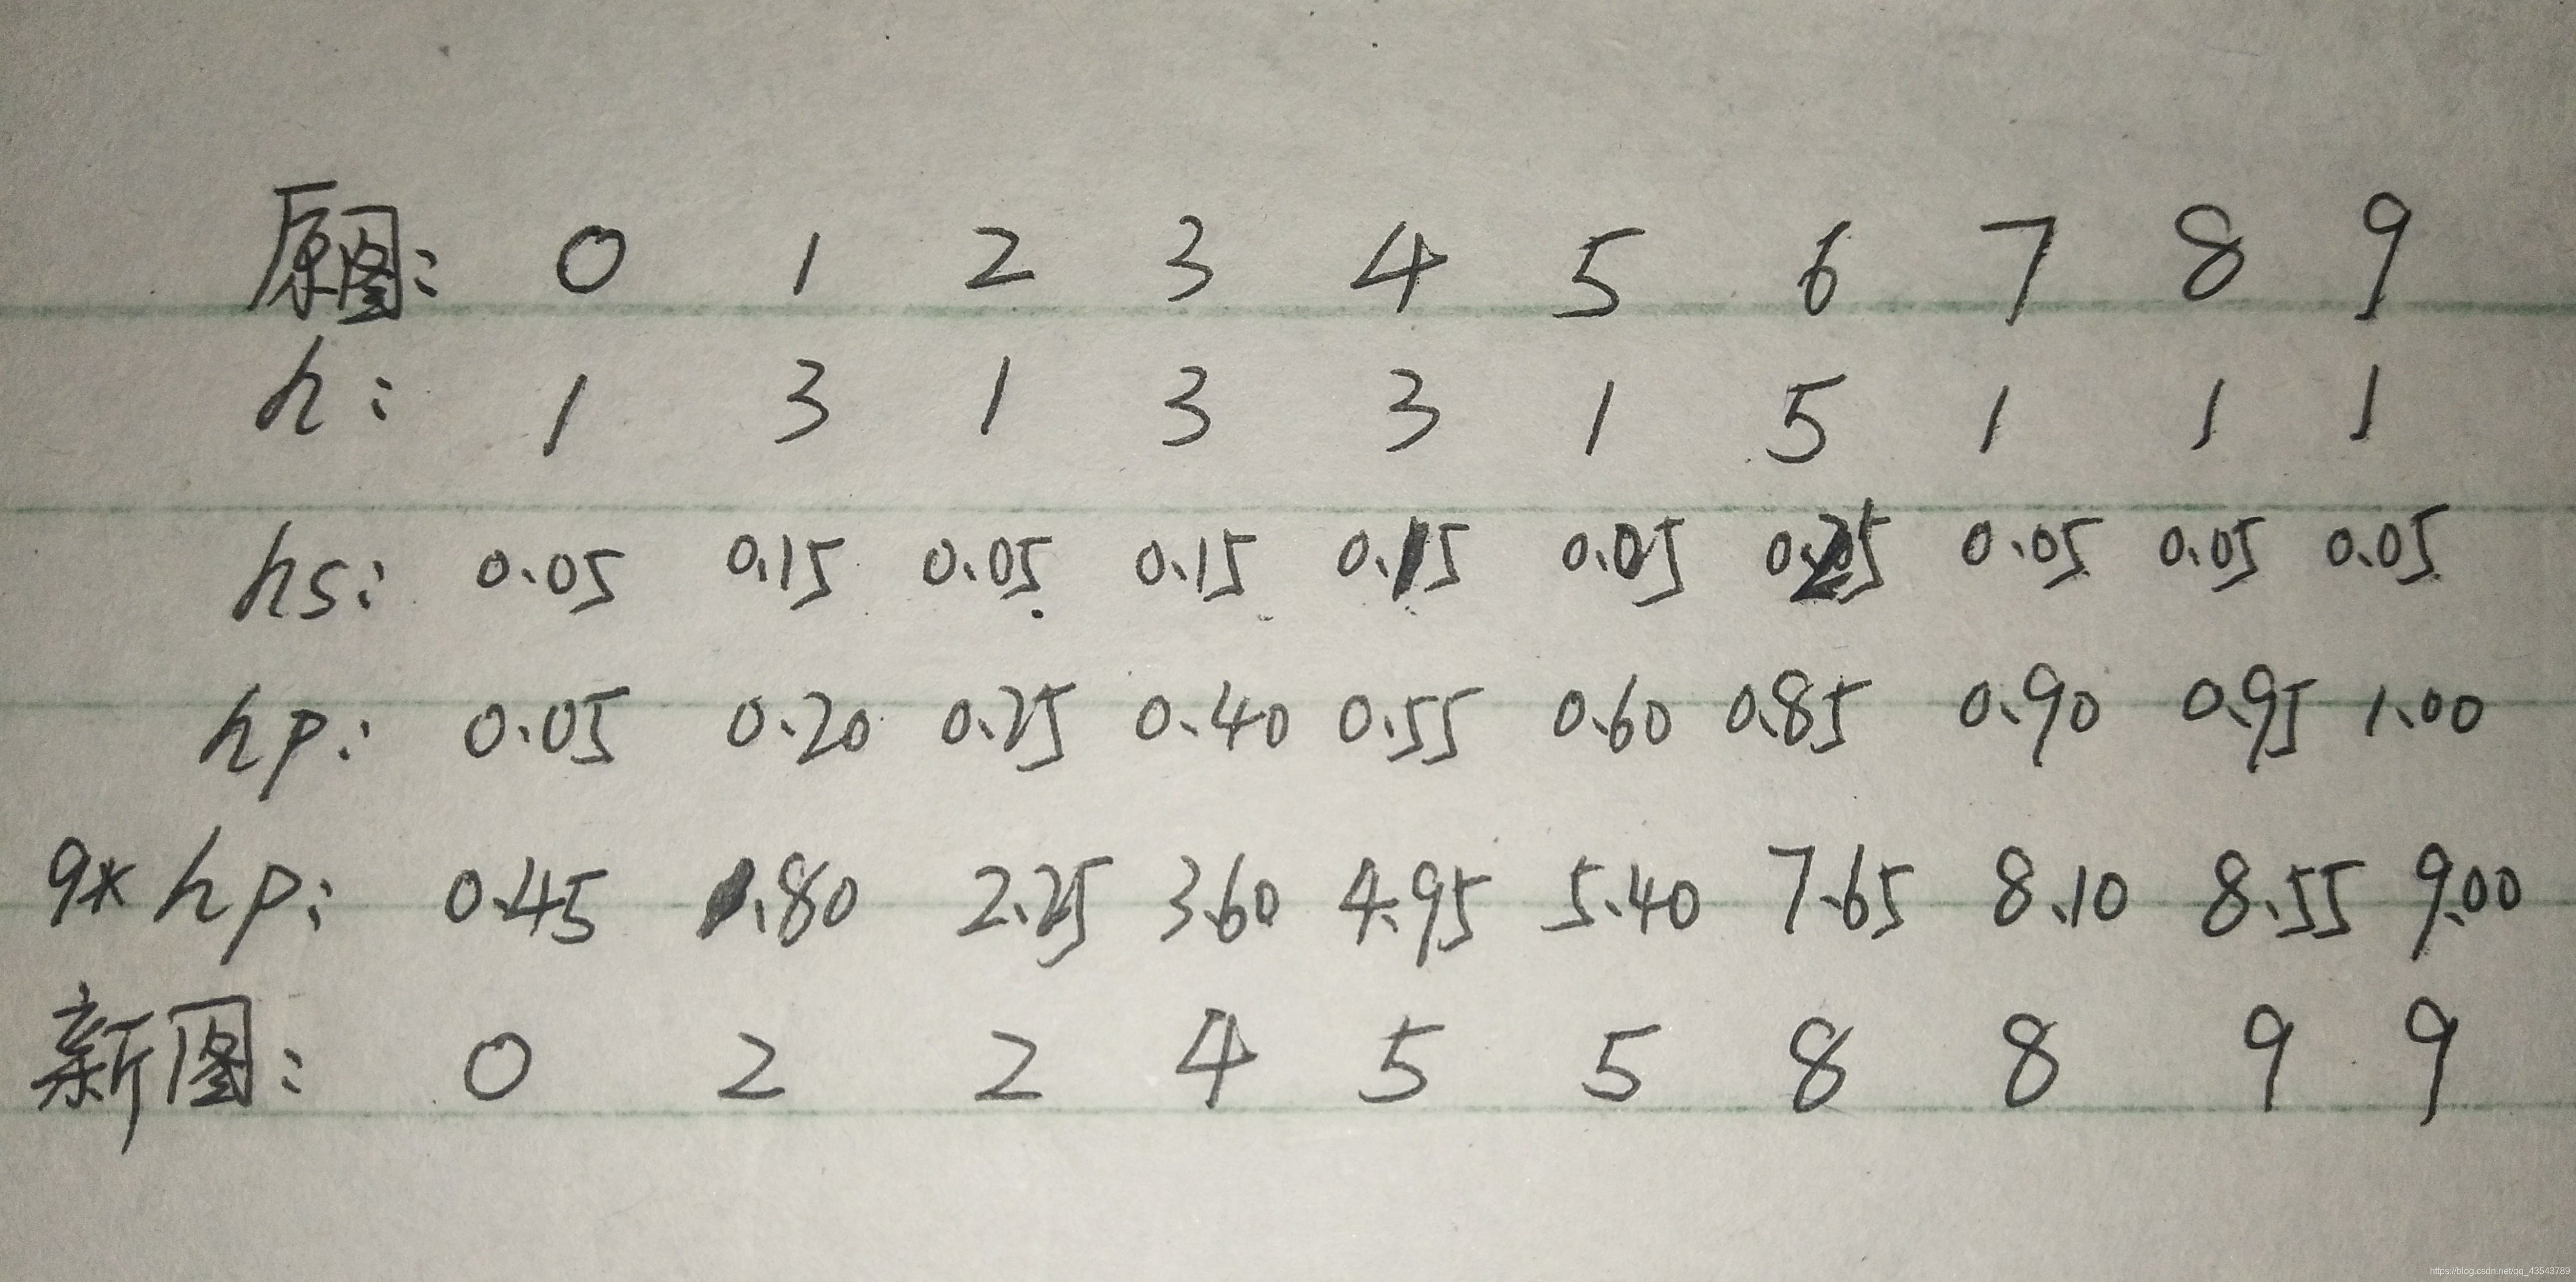 原图: 0 1 2 3 4 5 6 7 8 9
h: 1 3 1 3 3 1 5 1 1 1
hs: 0.05 0.15 0.05 0.15 0.15 0.05 0.25 0.05 0.05 0.05
hp: 0.05 0.20 0.25 0.40 0.55 0.60 0.85 0.90 0.95 1.00
9* hp: 0.45 1.80 2.25 3.60 4.95 5.40 7.65 8.10 8.55 9.00
新图: 0 2 2 4 5 5 8 8 9 9
https://blog.csdn.net/qq_43543789